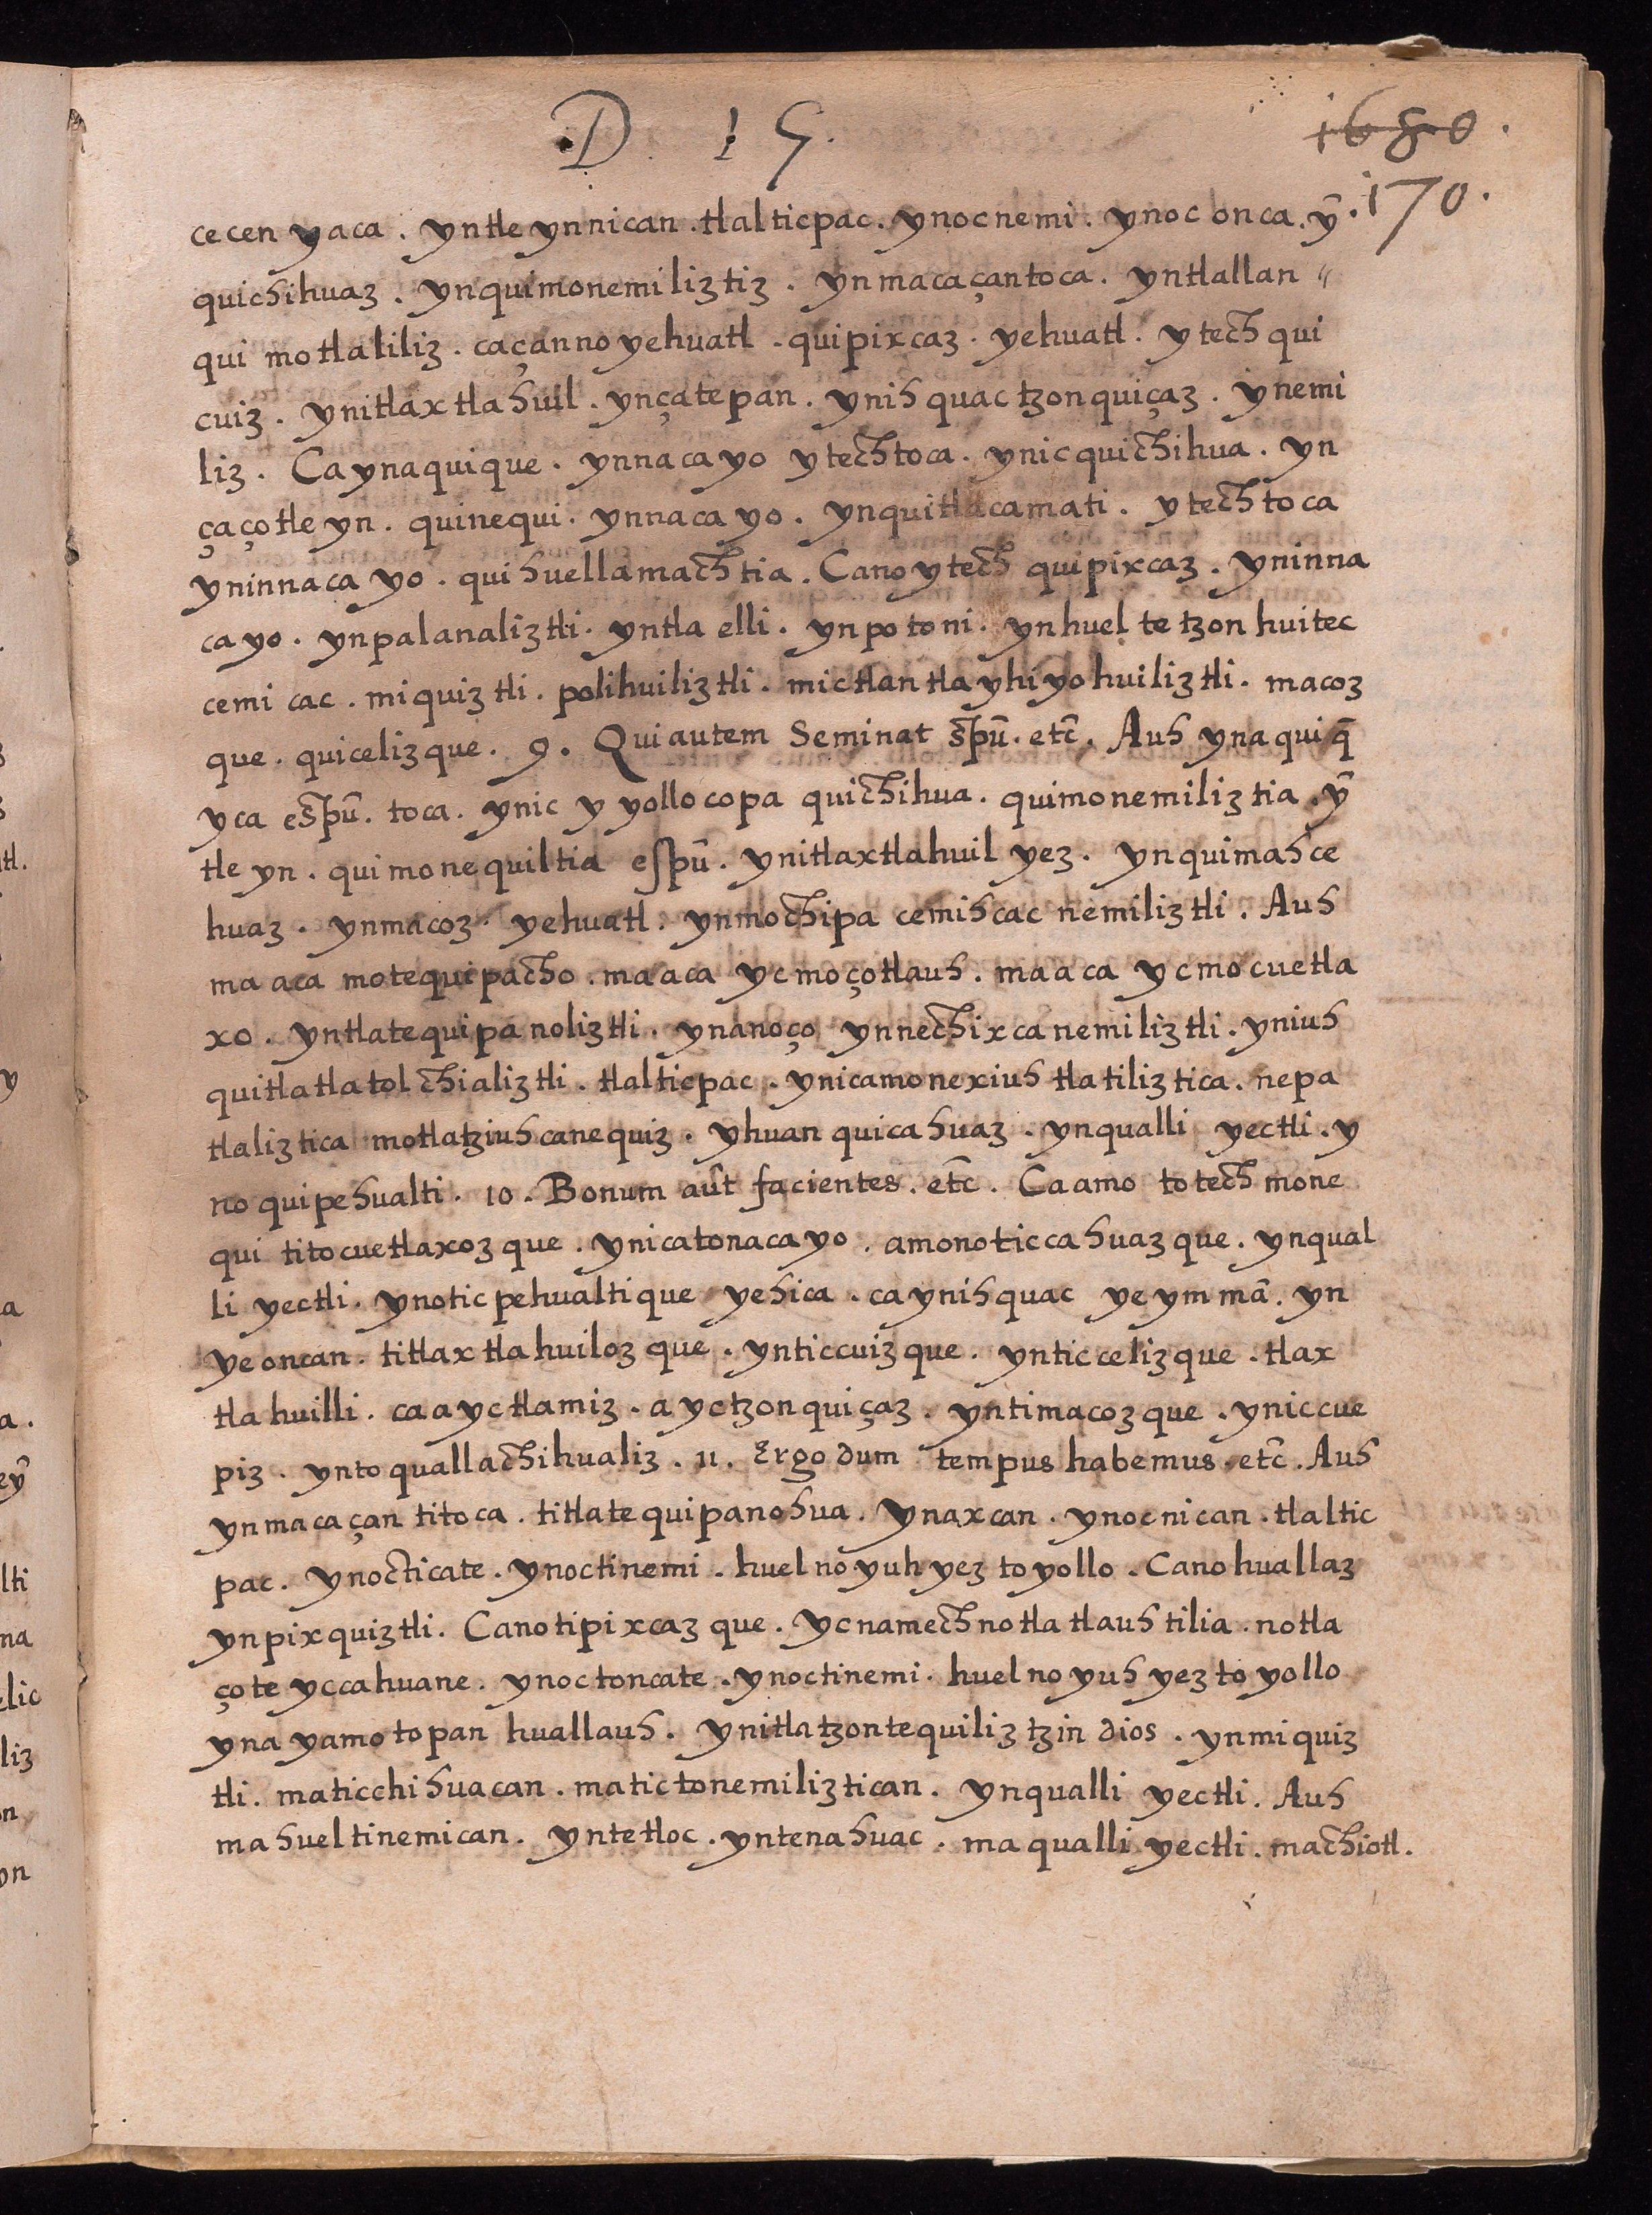 D. 15.
1680.
170.
cecen yaca. yntle ynnican. tlalticpac. ynocnemi. ynoc onca. ȳ.
quichihuaz. ynquimonemiliztiz. ynmacaçantoca. yntlallan〃
qui motlaliliz. caçannoyehuatl. quipixcaz. yehuatl. ytech qui
cuiz. ynitlaxtlahuil. ynçatepan. ynihquac tzonquiçaz. ynemi
liz. Ca ynaquique. ynnacayo ytechtoca. ynicquichihua. yn
çaçotleyn. quinequi. ynnacayo. ynquitlacamati. ytechtoca
yninnacayo. quihuellamachtia. Cano ytech quipixcaz. yninna
cayo. ynpalanaliztli. yntla elli. ynpotoni. ynhuel te tzonhuitec
cemi cac. miquiztli. polihuiliztli. mictlantlayhiyohuiliztli. macoz
que. quicelizque. 9. Qui autem Seminat spū. etc̄. Auh ynaquiq̄
yca espū. toca. ynic y yollocopa quichihua. quimonemiliztia. ȳ
tle yn. quimonequiltia espū. ynitlaxtlahuil yez. ynquimahce
huaz. ynmacoz. yehuatl. ynmochipa cemihcac nemiliztli. Auh
ma aca motequipacho. ma aca ycmoçotlauh. ma aca ycmocuetla
xo. yntlatequipanoliztli. ynanoço ynnechixcanemiliztli. yniuh
quitlatlatolchializtli. tlalticpac. ynicamonexiuhtlatiliztica. nepa
tlaliztica motlatziuhcanequiz. yhuan quicahuaz. ynqualli yectli. y
no quipehualti. 10. Bonum aūt facientes. etc̄. Ca amo totech mone
qui titocuetlaxozque. ynicatonacayo. amonoticcahuazque. ynqual
li yectli. ynoticpehualtique yehica. ca ynihquac ye ym mā. yn
ye oncan. titlaxtlahuilozque. ynticcuizque. ynticcelizque. tlax
tlahuilli. ca ayctlamiz. ayctzonquiçaz. yntimacozque. yniccue
piz. yntoquallachihualiz. 11. Ergo dum tempus habemus. etc̄. Auh
ynmacaçan titoca. titlatequipanohua. ynaxcan. ynocnican. tlaltic
pac. ynocticate. ynoctinemi. huel no yuh yez toyollo. Canohuallaz
ynpixquiztli. Canotipixcazque. yc namechnotlatlauhtilia. notla
çoteyccahuane. ynoctoncate. ynoctinemi. huel no yuh yez toyollo
yna yamo topan huallauh. ynitlatzontequiliztzin dios. ynmiquiz
tli. maticchihuacan. matictonemiliztican. ynqualli yectli. Auh
mahueltinemican. yntetloc. yntenahuac. ma qualli yectli. machiotl.